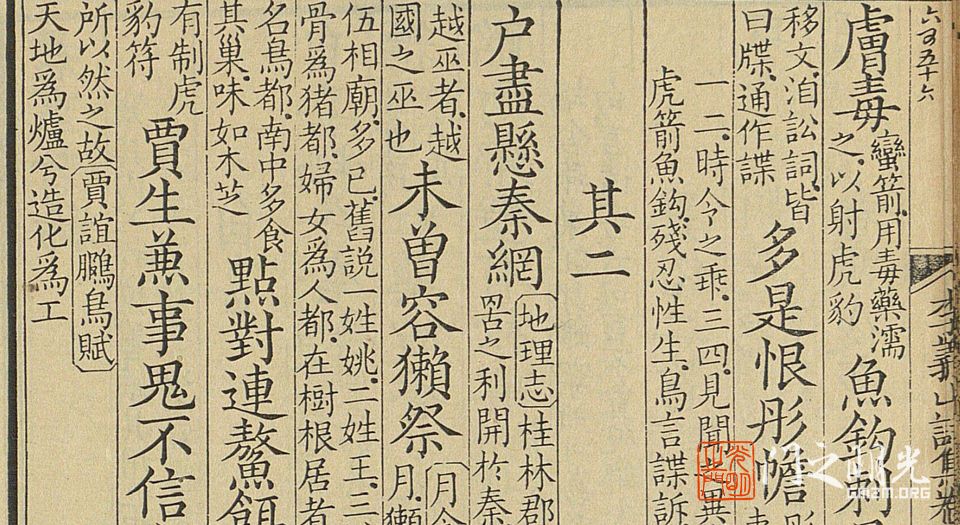 六百五十六
李義山詩集卷
膚毒
蠻箭用毒藥濡
之以射虎豹
魚鈎刺
移文洎訟詞皆
曰牒通作諜
多是恨彤幨
一二時令之乖三四見聞之異
虎箭魚鈎殘忍性生鳥言諜訴
其二
户盡懸秦網
地理志桂林郡
罟之利開於秦
越巫者越
國之巫也
未曾容獺祭
月令
月獺
伍相廟多已舊説一姓姚二姓王三
骨爲猪都婦女爲人都在樹根居者
名鳥都南中多食
其巢味如木芝
點對連鰲餌
有制虎
豹符
賈生兼事鬼不信
所以然之故賈誼鵩鳥賦
天地爲爐兮造化爲工
门之明光
GMZM.ORG